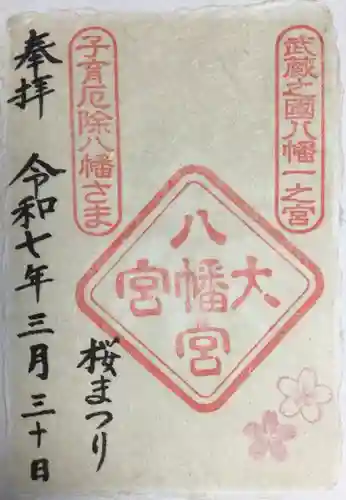 武蔵之國八幡一之宮
八
大幡宮
宮
子育厄除八幡さま
桜まつり
奉拝 令和七年三月三十日